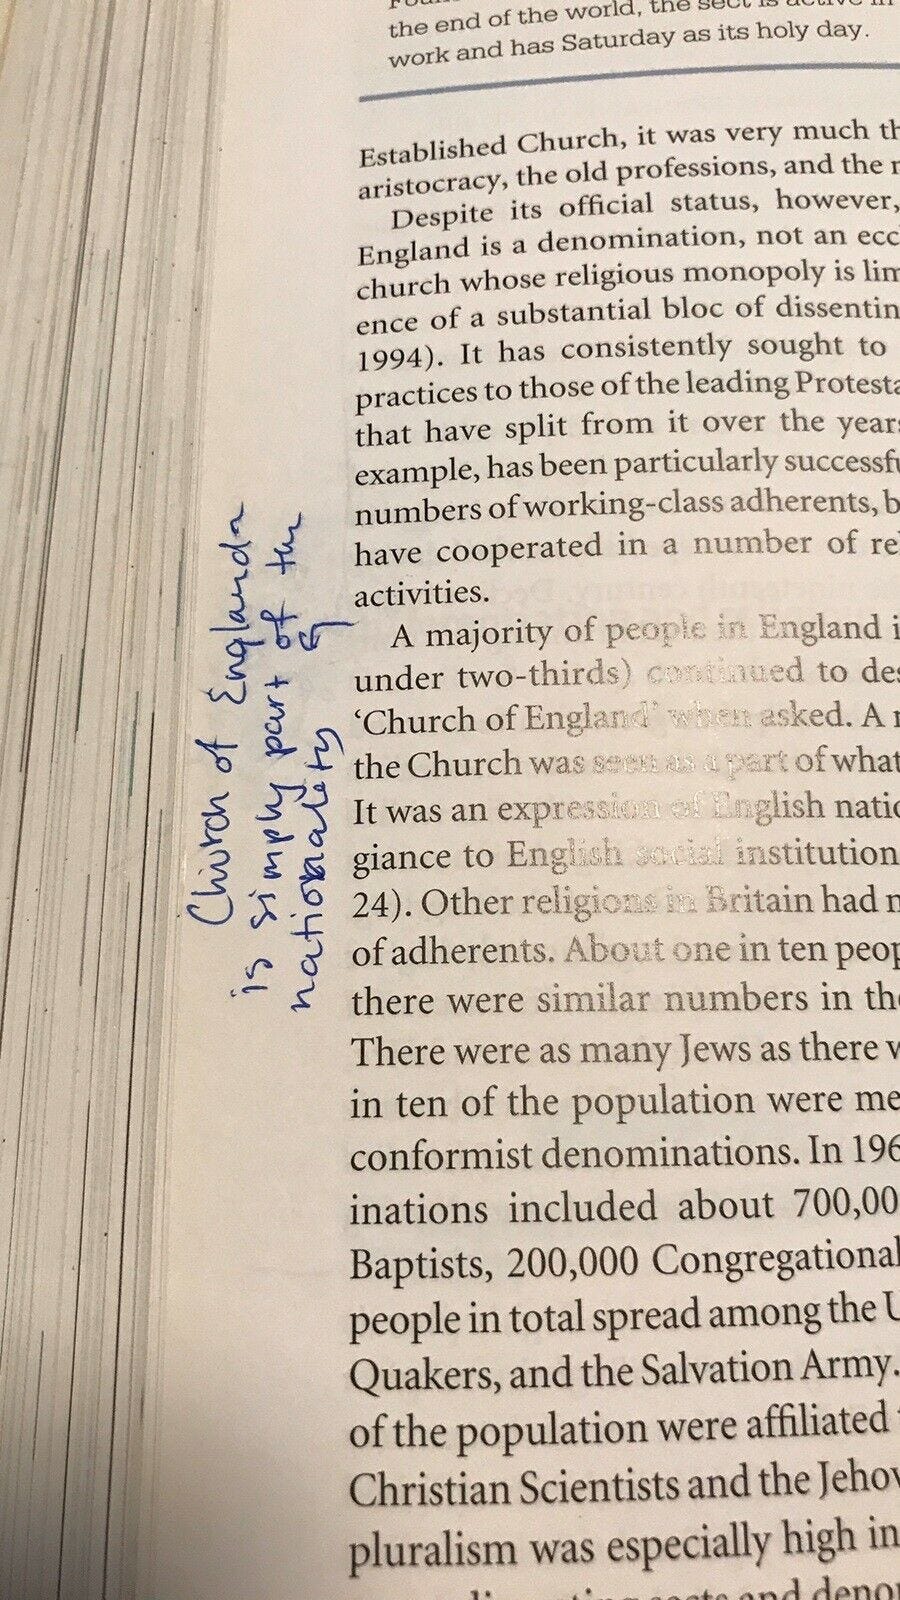 the end of the world, the sect is active in
work and has Saturday as its holy day.
Established Church, it was very much th
aristocracy, the old professions, and the
Despite its official status, however,
England is a denomination, not an ecc
church whose religious monopoly is lim
ence of a substantial bloc of dissentin
1994). It has consistently sought to
practices to those of the leading Protesta
that have split from it over the years
example, has been particularly successfu
numbers of working-class adherents, b
have cooperated in a number of re
activities.
A majority of people in England i
under two-thirds) continued to des
‘Church of England’ when asked. A
the Church was seen as a part of what
It was an expression of English natio
giance to English social institution
24). Other religions in Britain had
of adherents. About one in ten peop
there were similar numbers in the
There were as many Jews as there w
in ten of the population were me
conformist denominations. In 196
inations included about 700,00
Baptists, 200,000 Congregational
people in total spread among the U
Quakers, and the Salvation Army.
of the population were affiliated
Christian Scientists and the Jehov
pluralism was especially high in
sects and denor
Church of England
is simply part of the
nationality